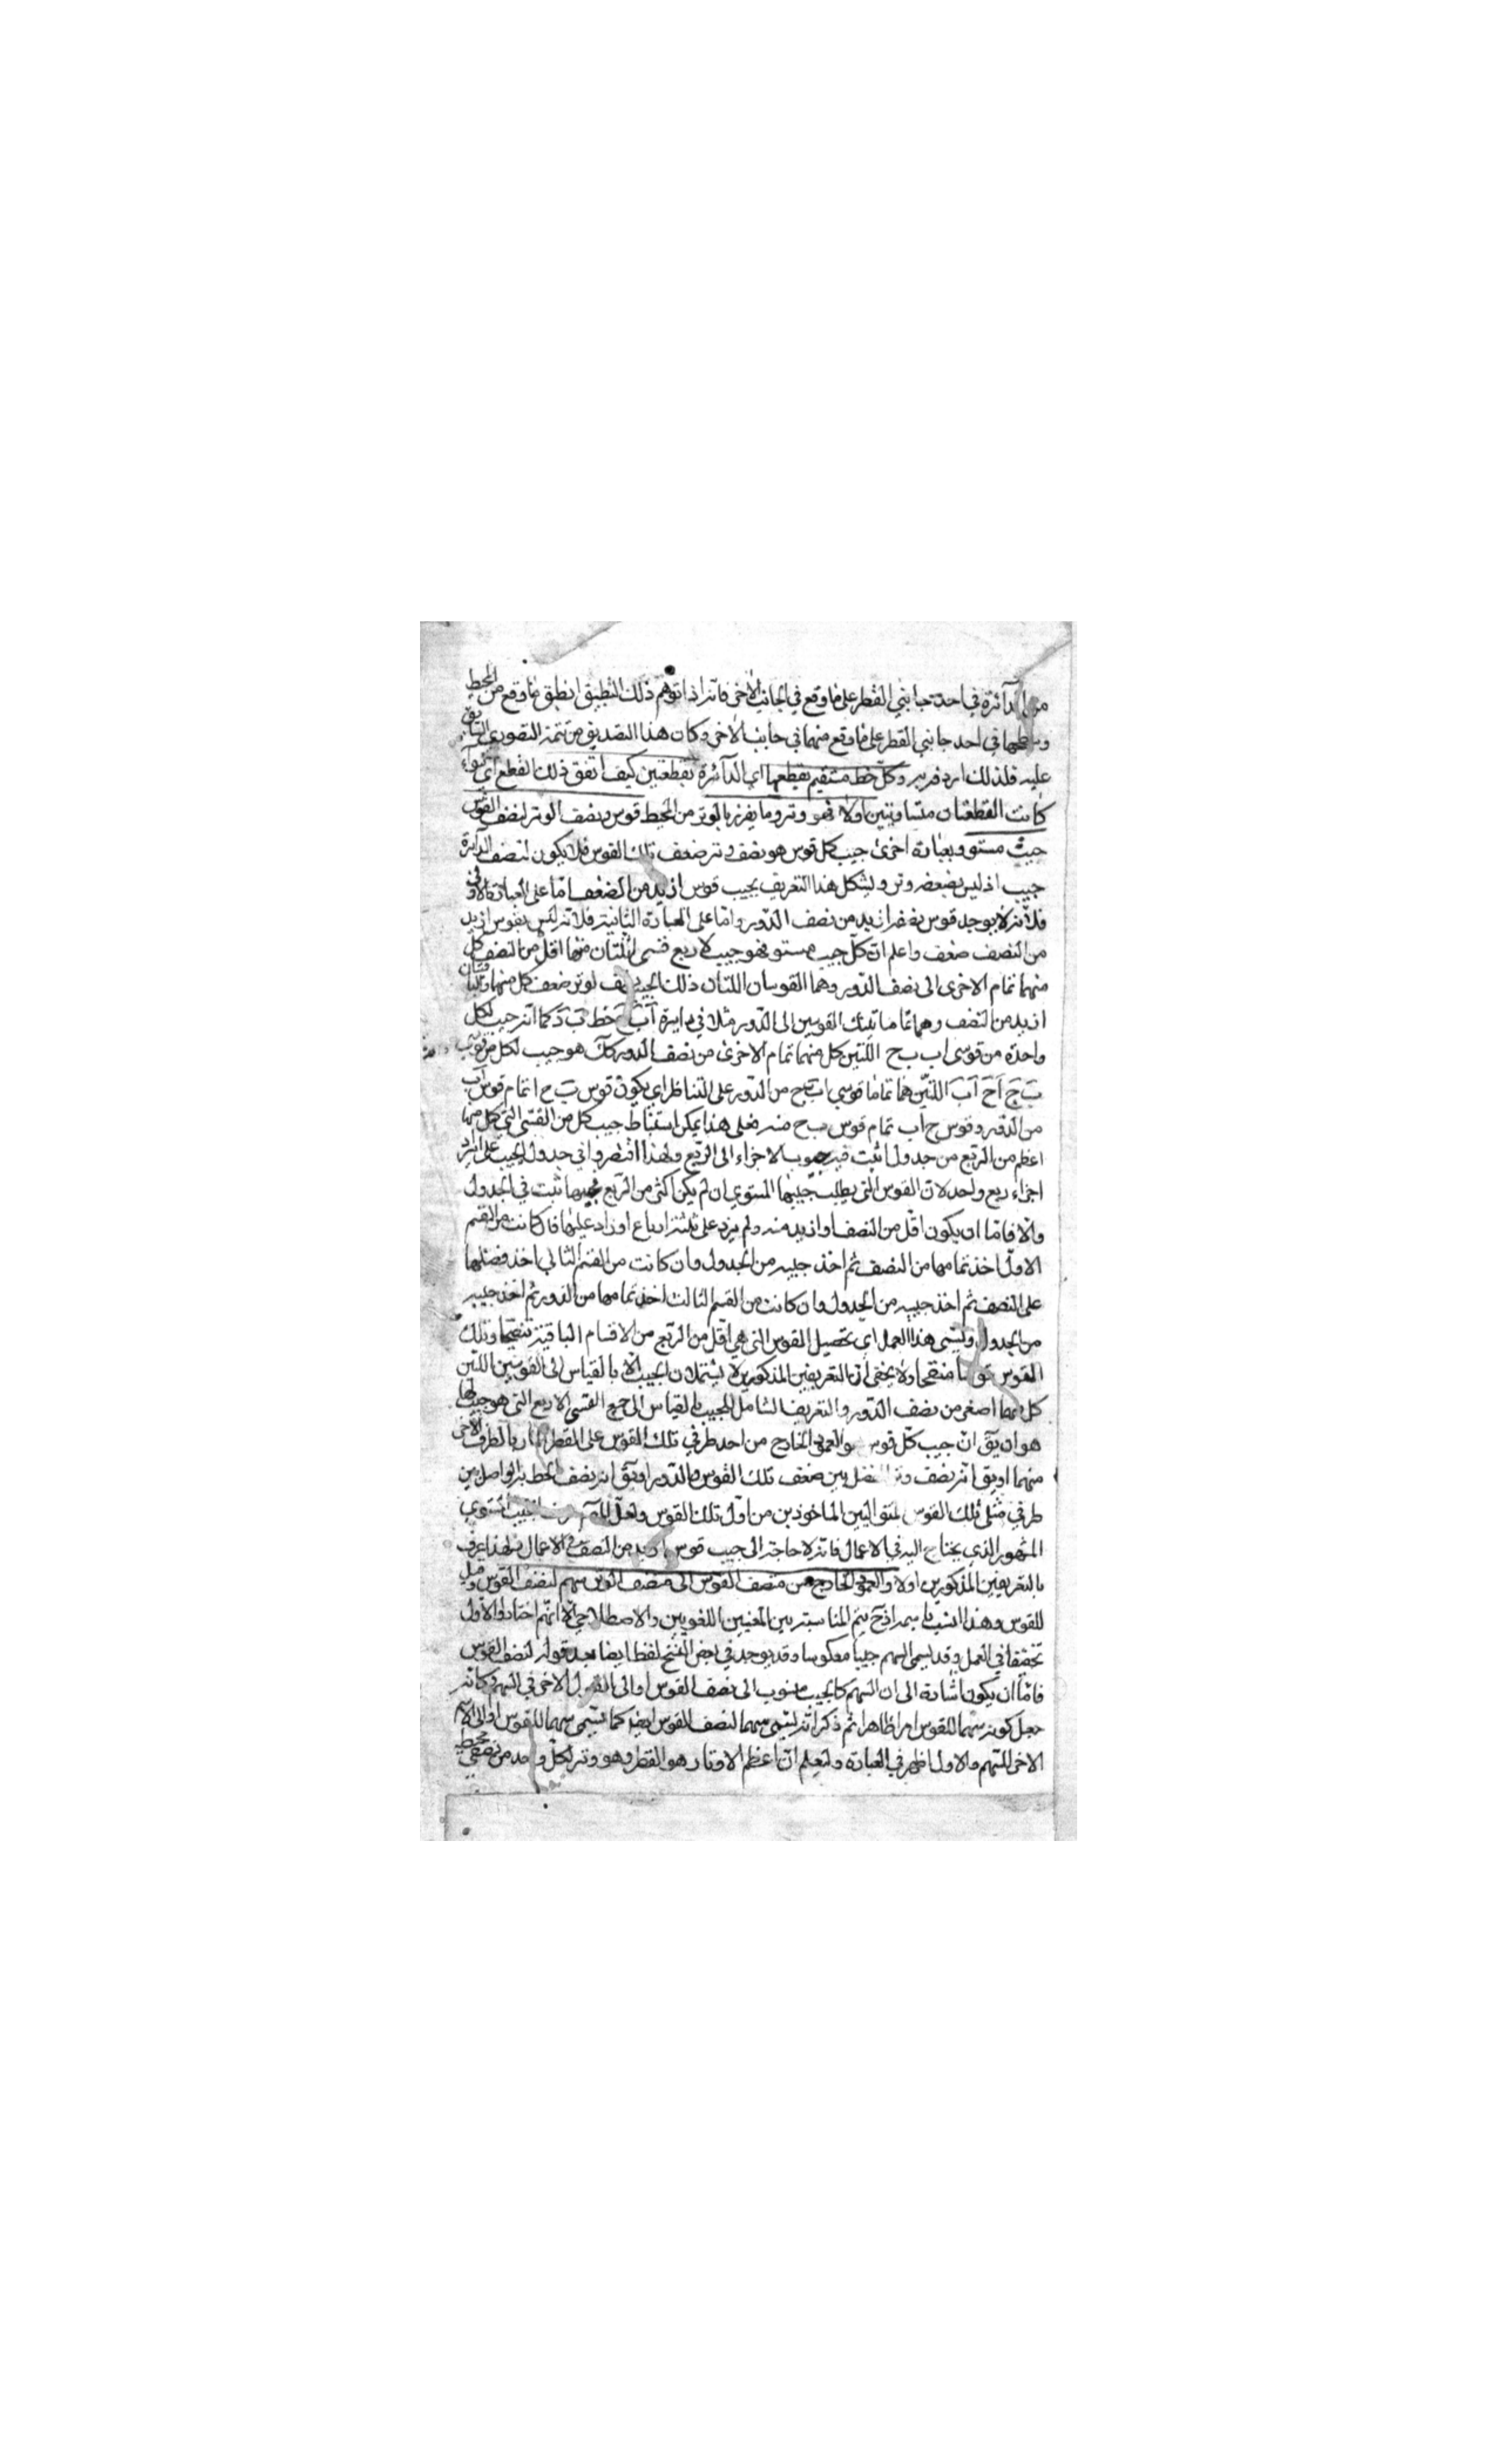 من الدائرة في احدى جانبي القطر على ما وقع في الجانب الاخر فانه اذا توهم ذلك التطبيق انطبق ما وقع من المحيط
و في احد جانبي القطر على ما وقع منهما في جانب الاخر وكان هذا التصديق من تتمة التصور
عليه فلذلك اردفه به وكل خط مستقيم يقطعها اي الدائرة بقطعتين كيف اتفق ذلك القطع اي سواء
كانت القطعتان متساويتين اولا فهو وتر وما يفرز بالوتر من المحيط قوس ونصف الوتر لنصف القوس
جيب مستو وبعبارة اخرى جيب كل قوس هو نصف وتر ضعف تلك القوس فلا يكون لنصف الدايرة
جيب اذ ليس لضعفه وتر ويشكل هذا التعريف بجيب قوس ازيد من النصف اما على العبارة الاولى
فلانه لا يوجد قوس نصفها ازيد من نصف الدور واما على العبارة الثانية فلانه ليس لقوس ازيد
من النصف ضعف واعلم ان كل جيب مستو فهو جيب لاربع قسي اثنتان منها اقل من النصف كل
منهما تمام الاخرى الى نصف الدور وهما القوسان اللتان ذلك الجيب نصف لوتر ضعف كل منهما وثنتان
ازيد من النصف وهما تماما تينك القوسين الى الدور مثلا في دايرة اب ج خط ب د كما انه جيب لكل
واحدة من قوسي اب ب ح اللتين كل منهما تمام الاخرى من نصف الدور كك هو جيب لكل من قوسي
ب ج ا ح ا ب اللتين هما تماما قوسي اب ب ج من الدور على التناظر اي يكون قوس ب ح ا تمام قوس اب
من الدور وقوس ح اب تمام قوس ب ح منه فعلى هذا يمكن استنباط جيب كل من القسي التي كل منها
اعظم من الربع من جدول اثبت فيه جيوب الاجزاء الى الربع ولهذا اقتصروا في جدول الجيب على ايراد
اجزاء ربع واحد لان القوس التي يطلب جيبها المستوي ان لم يكن اكثر من الربع فجيبها ثبت في الجدول
والا فاما ان يكون اقل من النصف او ازيد منه ولم يزد على ثلثة ارباع او زاد عليها فان كانت من القسم
الاول اخذ تمامها من النصف ثم اخذ جيبه من الجدول وان كانت من القسم الثاني اخذ فضلها
على النصف ثم اخذ جيبه من الجدول وان كانت من القسم الثالث اخذ تمامها من الدور ثم اخذ جيبه
من الجدول ويسمى هذا العمل اي تحصيل القوس التي هي اقل من الربع من الاقسام الباقية تنقيحا وتلك
القوس قوسا منقحا ولا يخفى ان التعريفين المذكورين لا يشتملان الجيب الا بالقياس الى القوسين اللتين
كل منهما اصغر من نصف الدور والتعريف الشامل للجيب بالقياس الى جميع القسي الاربع التي هو جيب لها
هو ان يق ان جيب كل قوس هو العمود الخارج من احد طرفي تلك القوس على القطر المار بالطرف الاخر
منهما او يق انه نصف وتر الفضل بين ضعف تلك القوس والدور او يق انه نصف الخط الواصل بين
طرفي مثلي تلك القوس المتواليين الماخوذين من اول تلك القوس الجيب المستوي
المشهور الذي يحتاج اليه في الاعمال فانه لا حاجة الى جيب قوس ازيد من النصف في الاعمال فلهذا عرف
بالتعريفين المذكورين اولا والعمود الخارج من منتصف القوس الى منتصف الوتر سهم لنصف القوس وقيل
للقوس وهذا انسب باسمه اذ ح يتم المناسبة بين المعنيين اللغوي والاصطلاحي الا انهم اختاروا الاول
تخفيفا في العمل وقد يسمى السهم جيبا معكوسا وقد يوجد في بعض النسخ لفظ ايضا بعد قوله لنصف القوس
فاما ان يكون اشارة الى ان السهم كالجيب منسوب الى نصف القوس او الى القول الاخر في السهم وكانه
جعل كونه سهما للقوس امرا ظاهرا ثم ذكر انه يسمى سهما لنصف القوس ايضا كما يسمى سهما للقوس او الى الاسم
الاخر للسهم والاول اظهر في العبارة وليعلم ان اعظم الاوتار هو القطر وهو وتر لكل واحد من نصفي محيط